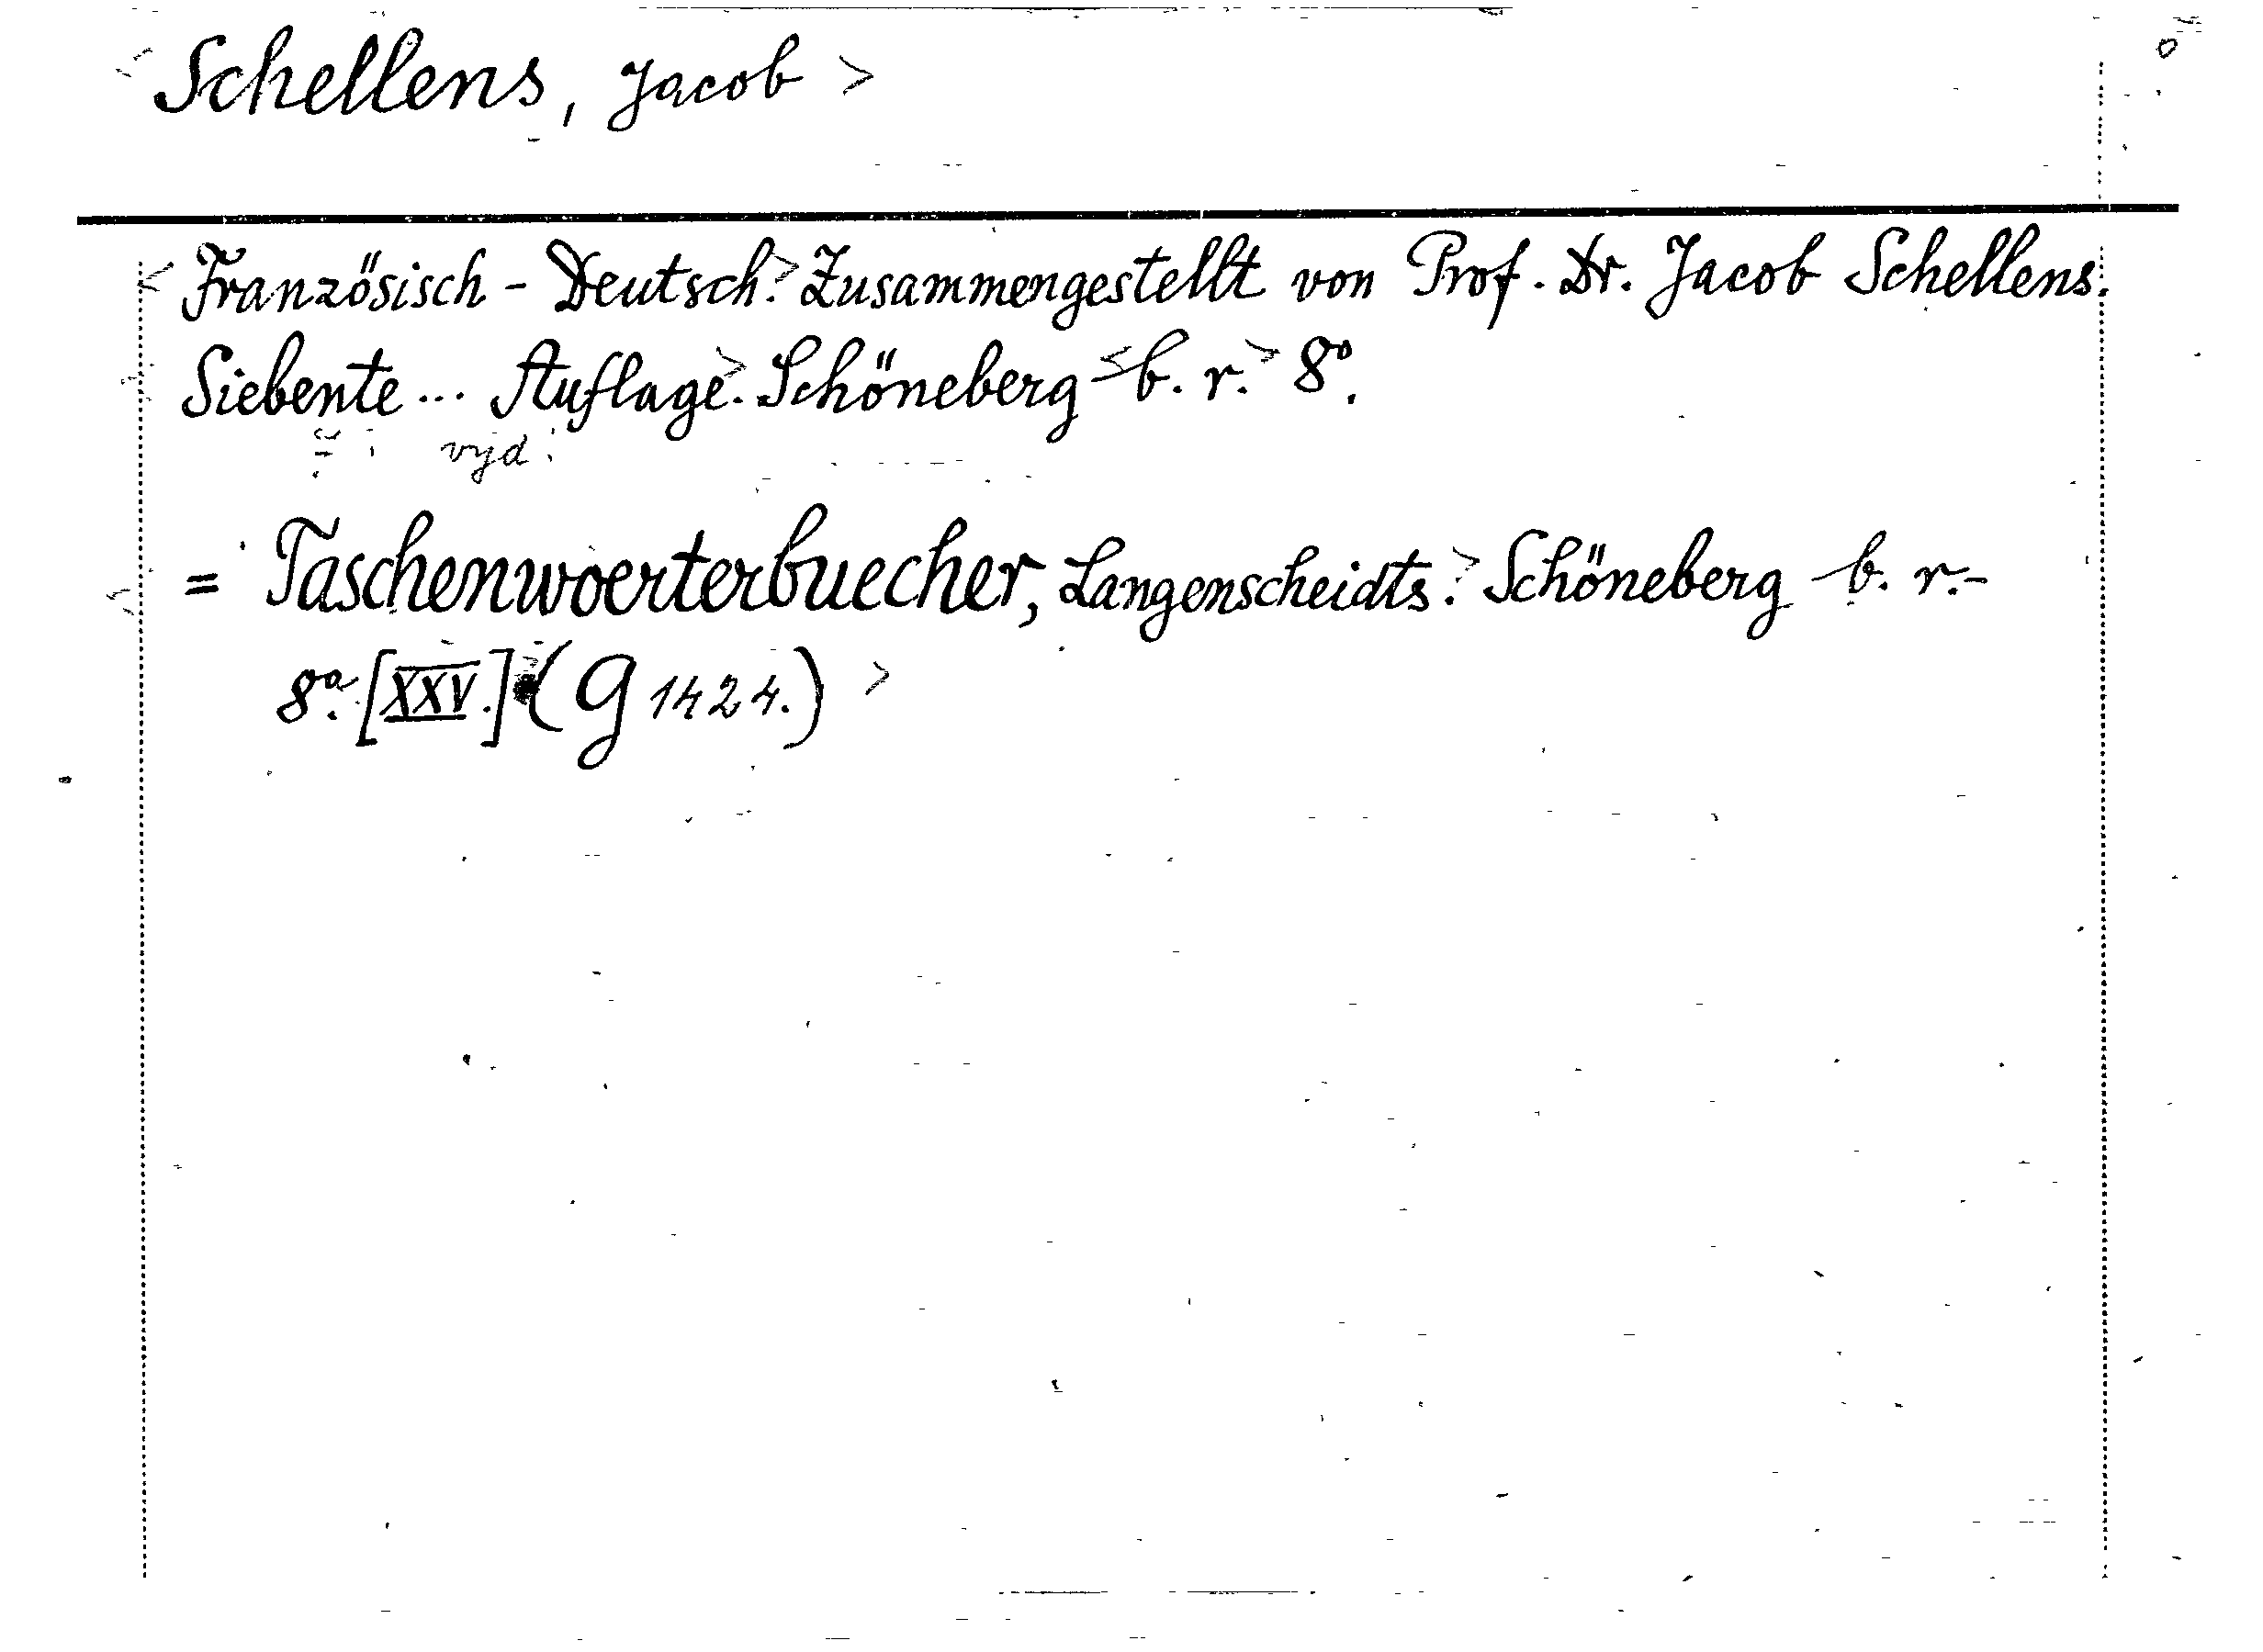 < Schellens, Jacob >
< Französisch - Deutsch.> Zusammengestellt von Prof. Dr. Jacob Schellens.
Siebente ... Auflage.> Schöneberg < b. r. > 8º.
vyd.
= Taschenwoerterbuecher, Langenscheidts.> Schöneberg b. r. -
8º. [XXV.] (G 1424.) >